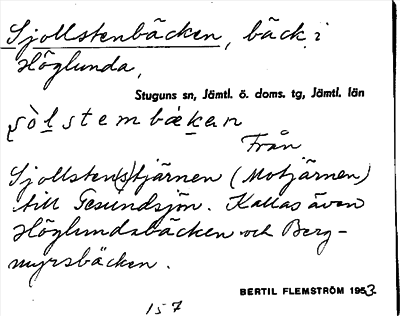 Sjollstenbäcken, bäck i
Höglunda,
Stuguns sn, Jämtl. ö. doms. tg, Jämtl. län
ʂòl̠stembæk̠en
Från
Sjollsten(s)tjärnen (Motjärnen)
till Gesundsjön. Kallas även
Höglundabäcken och Berg-
myrsbäcken.
BERTIL FLEMSTRÖM 1953.
157